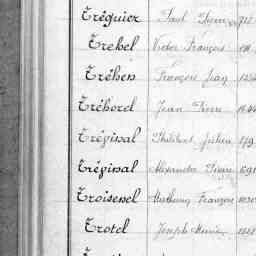 Tréguier Paul Pierre
Trehel Victor François
Tréhen François Jean
Tréhorel Jean Pierre
Trépival Philibert Julien 179
Trépival Alexandre Pierre 691
Troisenel Mathurin François
Trotel Joseph Marie